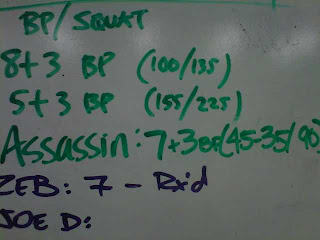 BP/SQUAT
8+3 BP (100/135)
5+3 BP (155/225)
Assassin: 7+3 (45-35/90)
ZEB: 7 - Rx'd
JOE D: